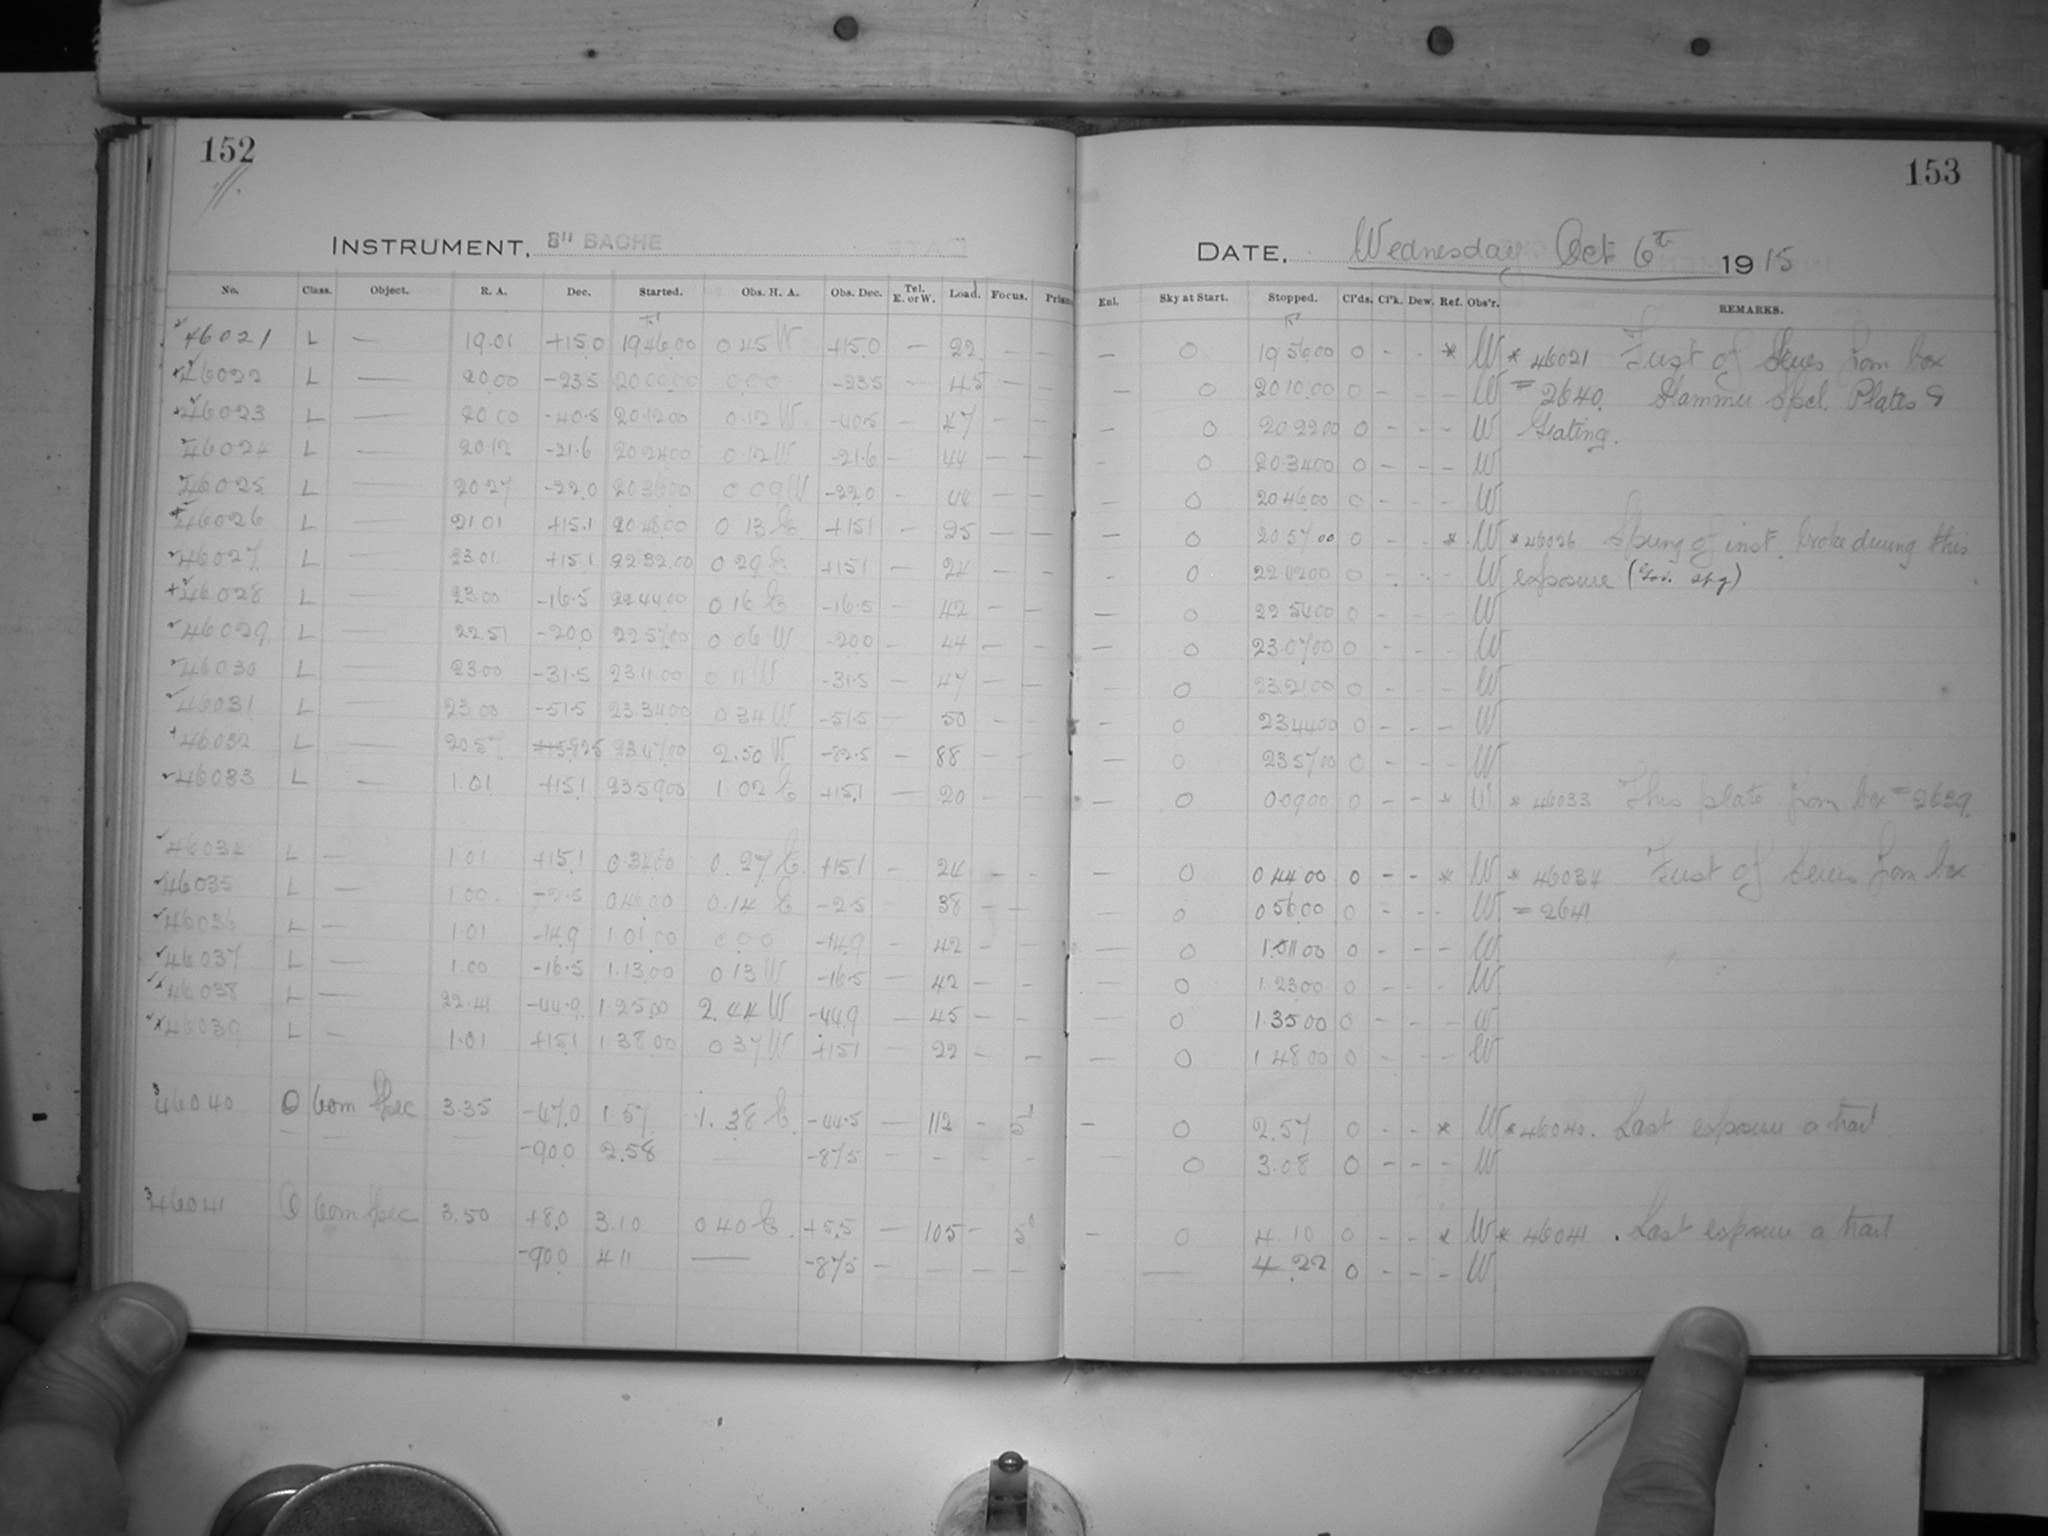 152
153
INSTRUMENT, 8" BACHE
DATE, Wednesday Oct 6th 1915
No. Class. Object. R. A. Dec. Started. Obs. H. A. Obs. Dec. Tel. E. or W. Load. Focus. Prism Enl. Sky at Start. Stopped. Cl'ds. Cl'k. Dew. Ref. Obs'r. REMARKS.
46021 L — 19.01 +15.0 19.46.00 0 45 W +15.0 — 22 — — — 0 19 56 00 0 - - * W * 46021 First of Series from box
46022 L — 20.00 -23.5 20 00.00 0 0 0 -23.5 — 45 — — — 0 20 10.00 0 - - - W = 2640.
46023 L — 20 00 -40.5 20.12.00 0.12 W -40.5 — 47 — — — 0 20 22 00 0 - - - W
46024 L — 20 12 -21.6 20 24 00 0.12 W -21.6 — 44 — — — 0 20.34 00 0 - - - W
46025 L — 20 27 -22.0 20 36 00 0 09 W -22.0 — 44 — — — 0 20 46.00 0 - - - W
46026 L — 21 01 +15.1 20 48.00 0 13 E +15.1 — 25 — — — 0 20 57 00 0 - - * W * 46026 Spring of inst. broke during this
46027 L — 23.01 +15.1 22.32.00 0 29 E +15.1 — 24 — — — 0 22 42 00 0 - - - W exposure
46028 L — 23.00 -16.5 22 44 00 0 16 E -16.5 — 42 — — — 0 22 54 00 0 - - - W
46029 L — 22.51 -20.0 22 57.00 0 06 W -20.0 — 44 — — — 0 23.07 00 0 - - - W
46030 L — 23.00 -31.5 23.11.00 0 11 W -31.5 — 47 — — — 0 23.21 00 0 - - - W
46031 L — 23 00 -51.5 23.34 00 0 34 W -51.5 — 50 — — — 0 23 44 00 0 - - - W
46032 L — 20.57 23.47.00 2.50 W -82.5 — 88 — — — 0 23 57 00 0 - - - W
46033 L — 1.01 +15.1 23.59.00 1.02 E +15.1 — 20 — — — 0 0 09 00 0 - - * W * 46033 This plate from box = 2639.
46034 L — 1.01 +15.1 0.34.00 0.27 E +15.1 — 24 — — — 0 0 44 00 0 - - * W * 46034 First of Series from box
46035 L — 1.00. -2.5 0 46.00 0.14 E -2.5 — 38 — — — 0 0 56.00 0 - - - W = 2641
46036 L — 1.01 -14.9 1.01.00 0 0 0 -14.9 — 42 — — — 0 1.11 00 0 - - - W
46037 L — 1.00 -16.5 1.13.00 0 13 W -16.5 — 42 — — — 0 1.23 00 0 - - - W
46038 L — 22.41 -44.9 1.25.00 2.44 W -44.9 — 45 — — — 0 1.35 00 0 - - - W
46039 L — 1.01 +15.1 1.38.00 0 37 W +15.1 — 22 — — — 0 1 48 00 0 - - - W
46040 O Com Spec 3.35 -47.0 1.57 1.38 E -44.5 — 112 — 5 — 0 2.57 0 - - * W * 46040. Last exposure a trail
-90.0 2.58 — -87.5 — — — — — 0 3.08 0 - - - W
46041 O Com Spec 3.50 +8.0 3.10 0 40 E +5.5 — 105 — 5 — 0 4.10 0 - - * W * 46041. Last exposure a trail
-90.0 4 11 — -87.5 — — — — — 4.22 0 - - - W